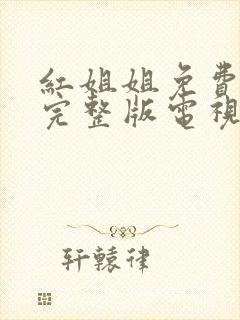 紅姐姐免費
完整版電視
轩轅律